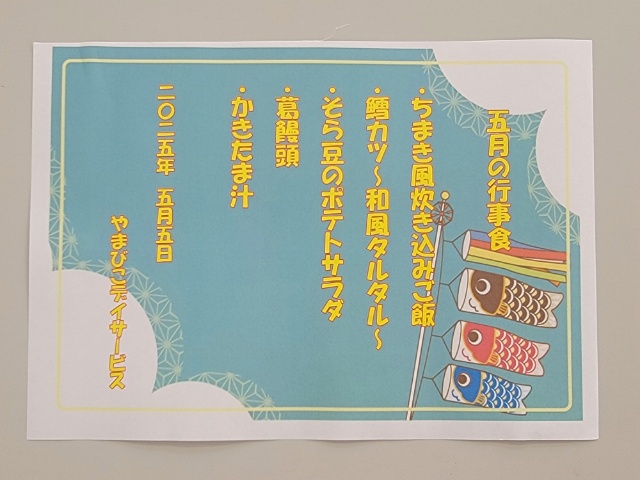 五月の行事食
・ちまき風炊き込みご飯
・鱈カツ～和風タルタル～
・そら豆のポテトサラダ
・葛饅頭
・かきたま汁
二〇二五年 五月五日
やまびこデイサービス